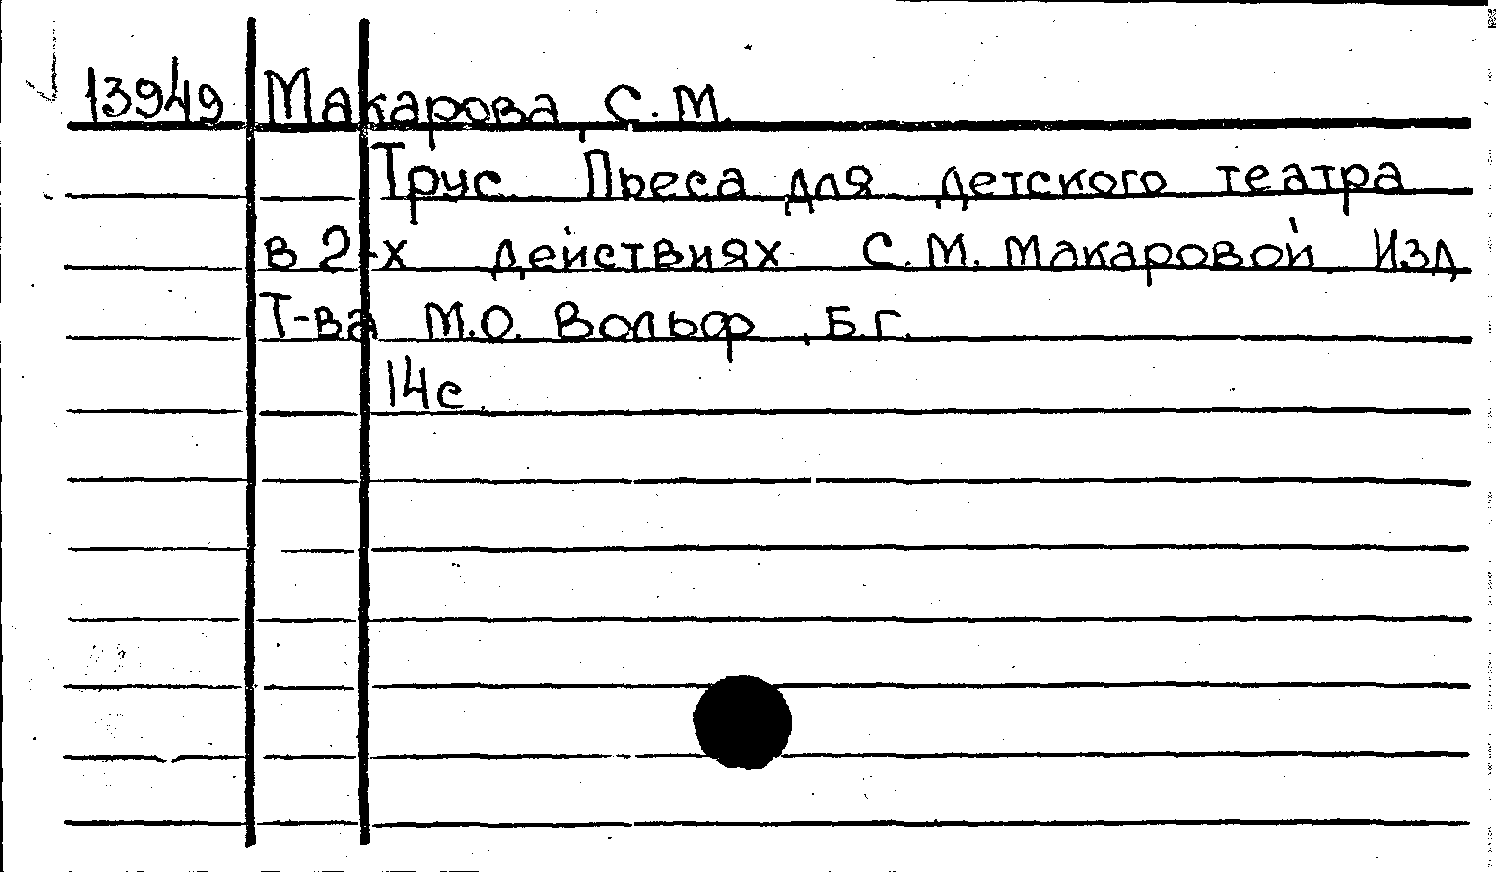 13949 Макарова, С.М.
Трус. Пьеса для детского театра
в 2-х действиях С.М. Макаровой. Изд
Т-ва М.О. Вольф, Б.Г.
14с.